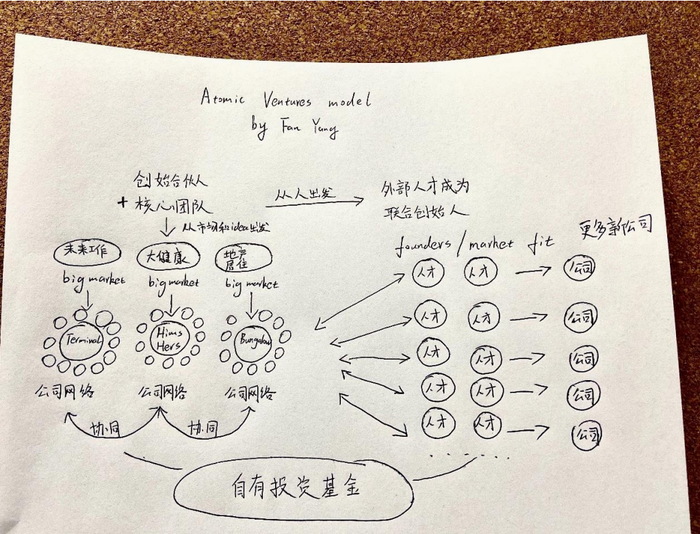 Atomic Ventures model
by Fan Yang
创始合伙人
+ 核心团队
从人出发
外部人才成为
联合创始人
从市场和idea出发
founders / market fit
更多新公司
未来工作
大健康
地产
居住
big market
big market
big market
Terminal
Hims
Hers
Bungalow
公司网络
公司网络
公司网络
协同
协同
人才 人才 公司
人才 人才 公司
人才 人才 公司
人才 人才 公司
人才 人才 公司
自有投资基金